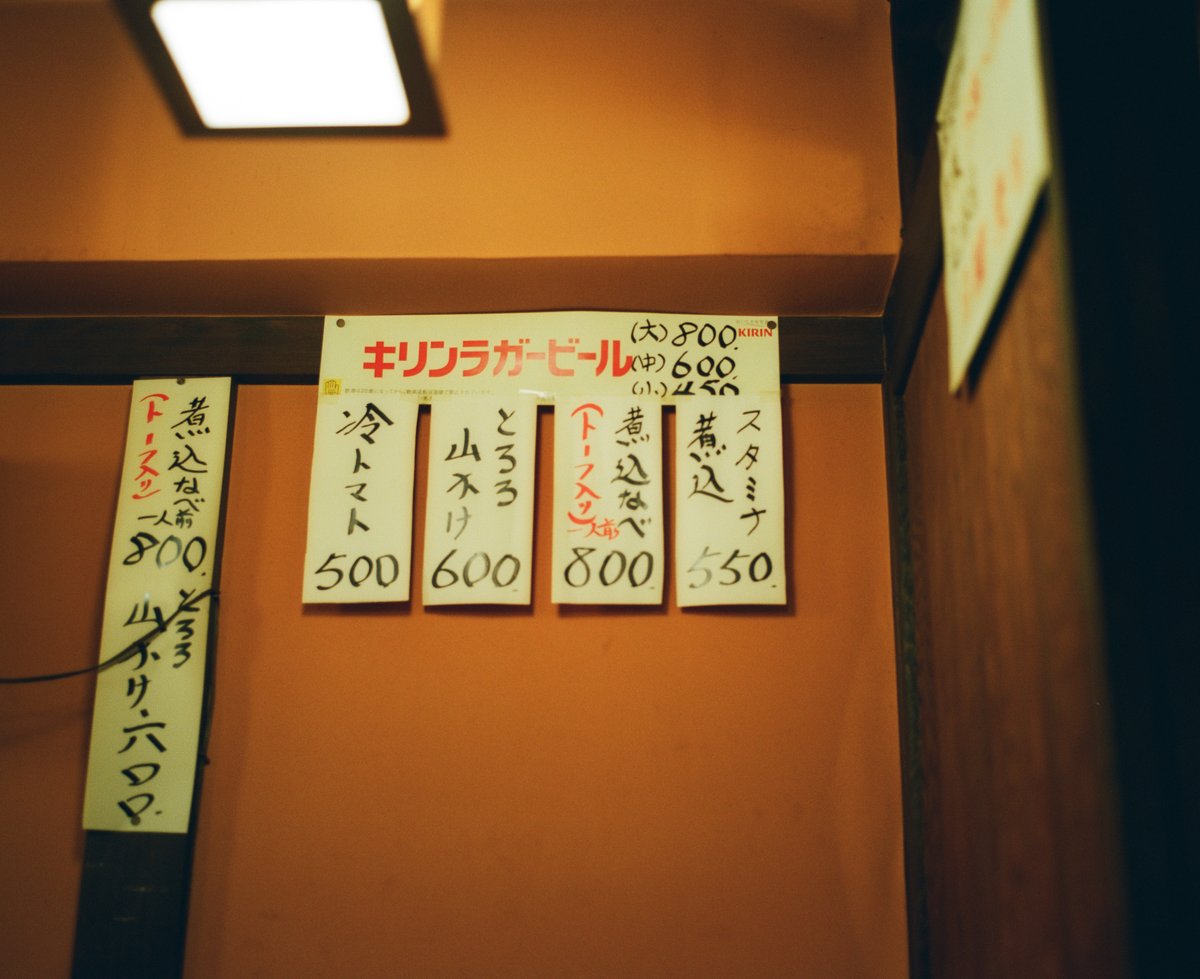 キリンラガービール
(大)800.
(中)600.
(小)450
KIRIN
冷トマト
500
とろろ
山かけ
600
煮込なべ
(トーフ入り)
一人前
800.
スタミナ
煮込
550.
煮込なべ
(トーフ入り)
一人前
800.
とろろ
山かけ.六〇〇.